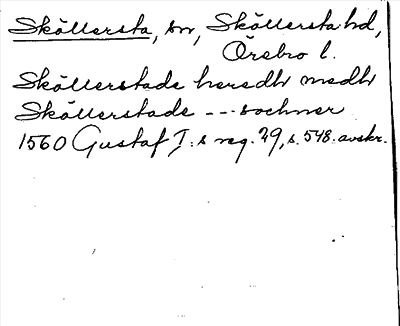 Sköllersta, sn, Sköllersta hd,
Örebro l.
Sköllerstade heredtz medtz
Sköllerstade --- sochner
1560 Gustaf I:s reg. 29, s. 548. avskr.